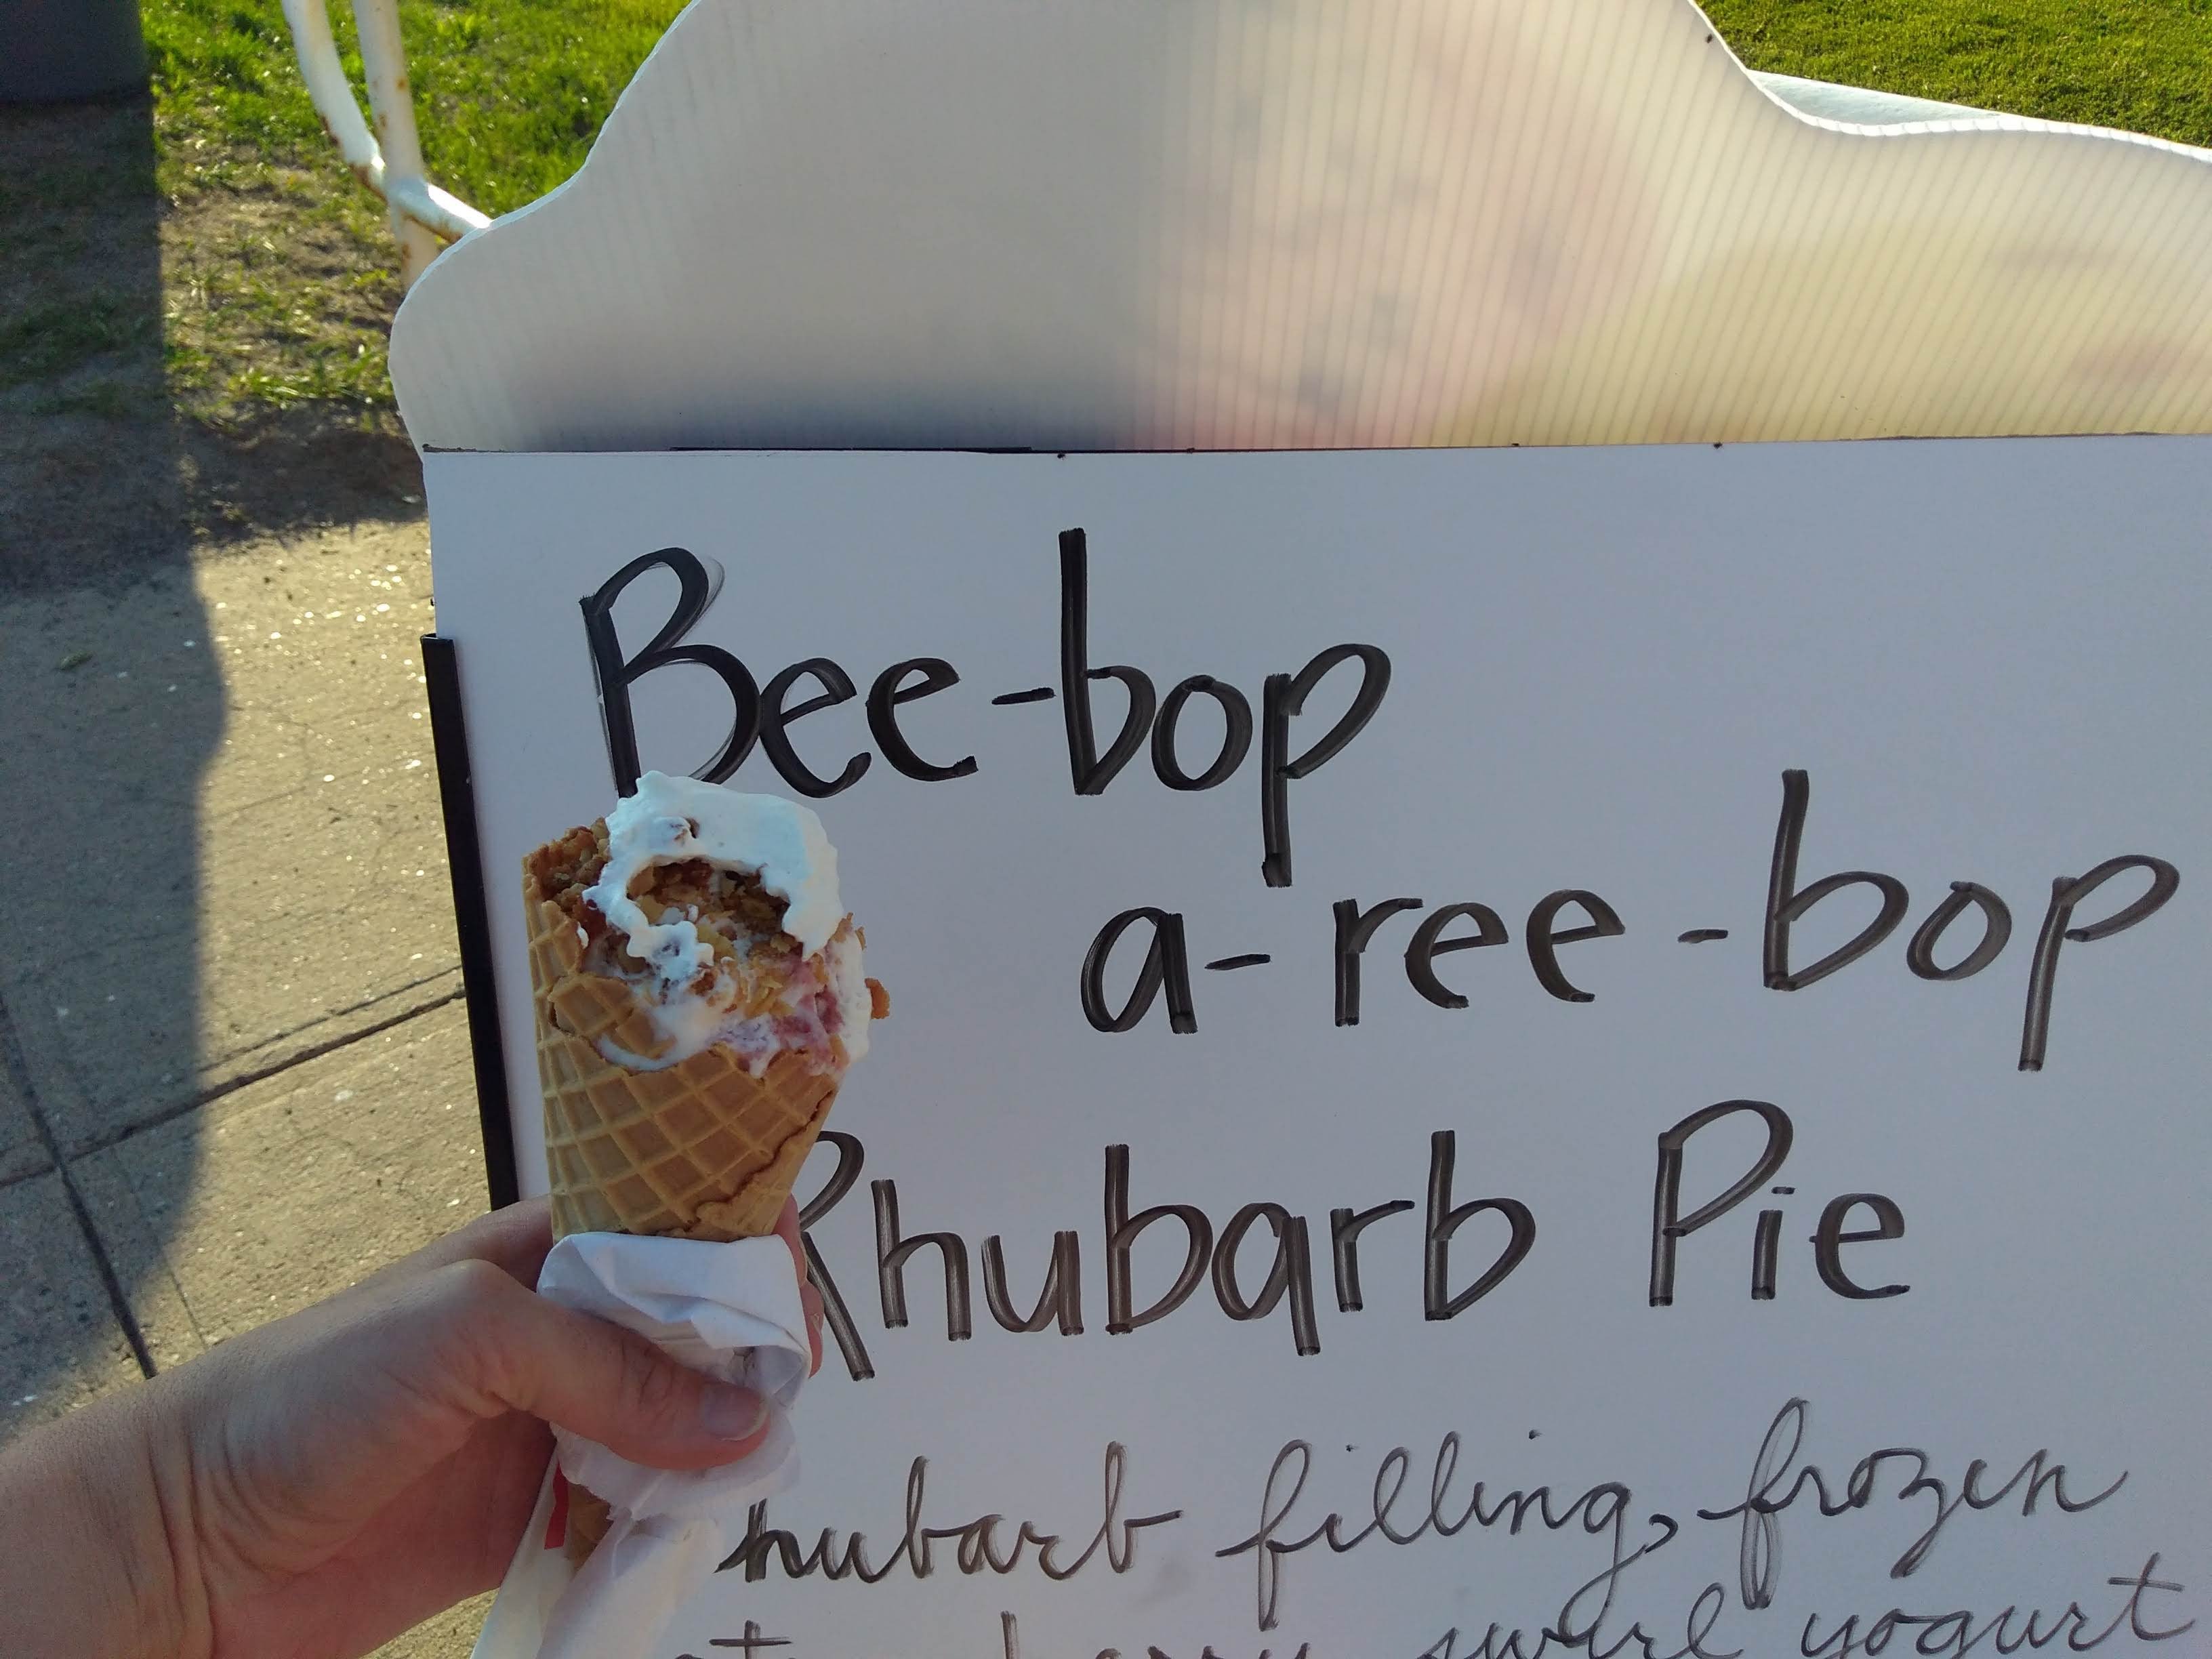 Bee-bop
a-ree-bop
Rhubarb Pie
rhubarb filling, frozen
swirl yogurt